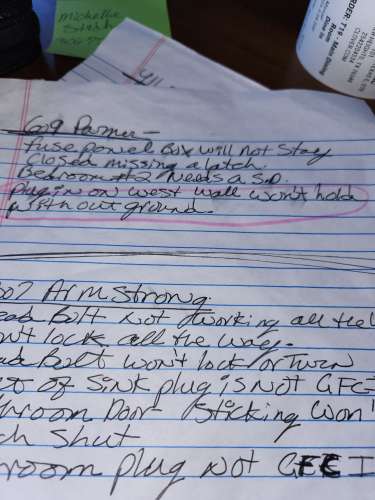 Michelle
ORDER: T19 - Main Dining
Room
Dine In
CLOVER.COM
609 Parmer -
Fuse panel Box will not stay
Closed missing a latch.
Bedroom #2 Needs a S.D.
Plug in on west wall won't hold
without ground.
Armstrong.
Bolt Not working all the
lock all the way.
Bolt won't lock or Turn
of Sink plug is not GFCI
Door Sticking Won'
Shut
room plug Not GFCI